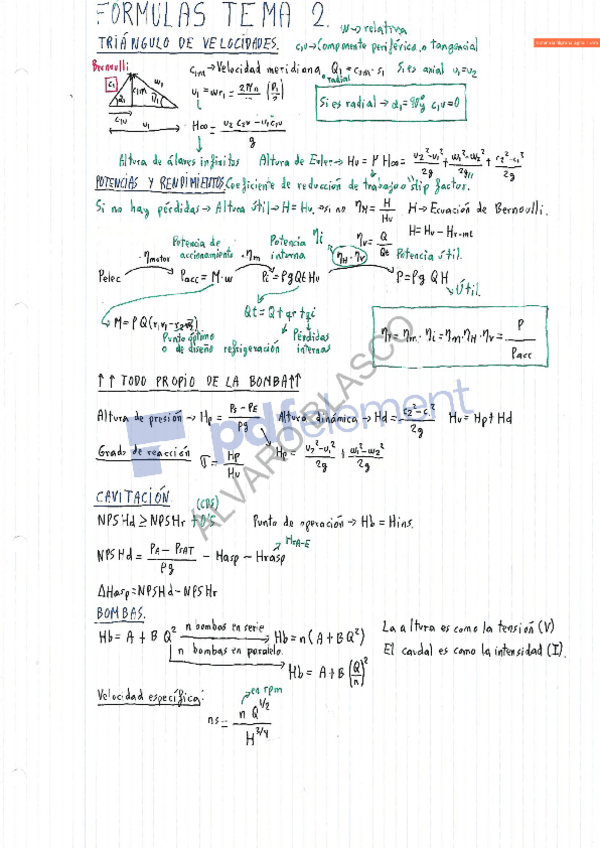 FÓRMULAS TEMA 2.
W→relativa
TRIÁNGULO DE VELOCIDADES.
c1u→Componente periférica, o tangencial
Bernoulli
c1m→Velocidad meridiana, Q1 = c1m·s1 Si es axial u1=u2
radial
u1 = wr1 =
Si es radial → α1=90º y c1u=0
c1 c1m w1
c1u
u1
H∞ = (u2 c2u - u1 c1u)/g
Altura de álabes infinitos Altura de Euler→ Hu = μ H∞ = (u2²-u1²)/2g + (w1²-w2²)/2g + (c2²-c1²)/2g
POTENCIAS Y RENDIMIENTOS. Coeficiente de reducción de trabajo o "slip factor.
Si no hay pérdidas → Altura útil → H = Hu, si no ηH = H/Hu H→Ecuación de Bernoulli.
H = Hu - Hr-int
Potencia de accionamiento
Potencia interna
ηi
ηv = Q/Qt
ηmotor ηm ηH·ηv Potencia útil.
Pelec Pacc = M·w Pi = ρgQtHu P = ρg QH
Útil.
Qt = Q+qr+qi
M = ρQ(r1v1-r2v2)
Punto óptimo o de diseño
refrigeración
Pérdidas internas
ηT = ηm·ηi = ηm·ηH·ηv = P/Pacc
↑↑TODO PROPIO DE LA BOMBA↑↑
Altura de presión → Hp = (PS-PE)/ρg Altura dinámica → Hd = (c2²-c1²)/2g Hu = Hp + Hd
Grado de reacción σ = Hp/Hu Hp = (u2²-u1²)/2g + (w1²-w2²)/2g
CAVITACIÓN.
(CDS)
NPSHd ≥ NPSHr + 0'5 Punto de operación → Hb = Hins.
HrA-E
NPSHd = (PA-PSAT)/ρg - Hasp - Hrasp
ΔHasp = NPSHd - NPSHr
BOMBAS.
Hb = A + B Q² n bombas en serie → Hb = n(A+BQ²)
n bombas en paralelo. → Hb = A+B(Q/n)²
La altura es como la tensión (V)
El caudal es como la intensidad (I).
Velocidad específica:
en rpm
ns = n Q^1/2 / H^3/4
pdfelement
ALVARO BLASCO